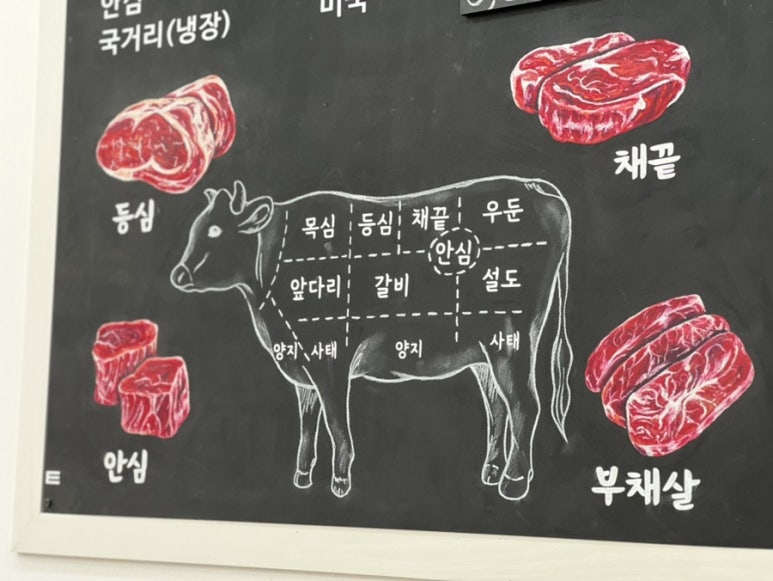 안심
국거리(냉장)
미국
채끝
등심
목심 등심 채끝 우둔
안심
앞다리 갈비 설도
양지 사태 양지 사태
안심
부채살